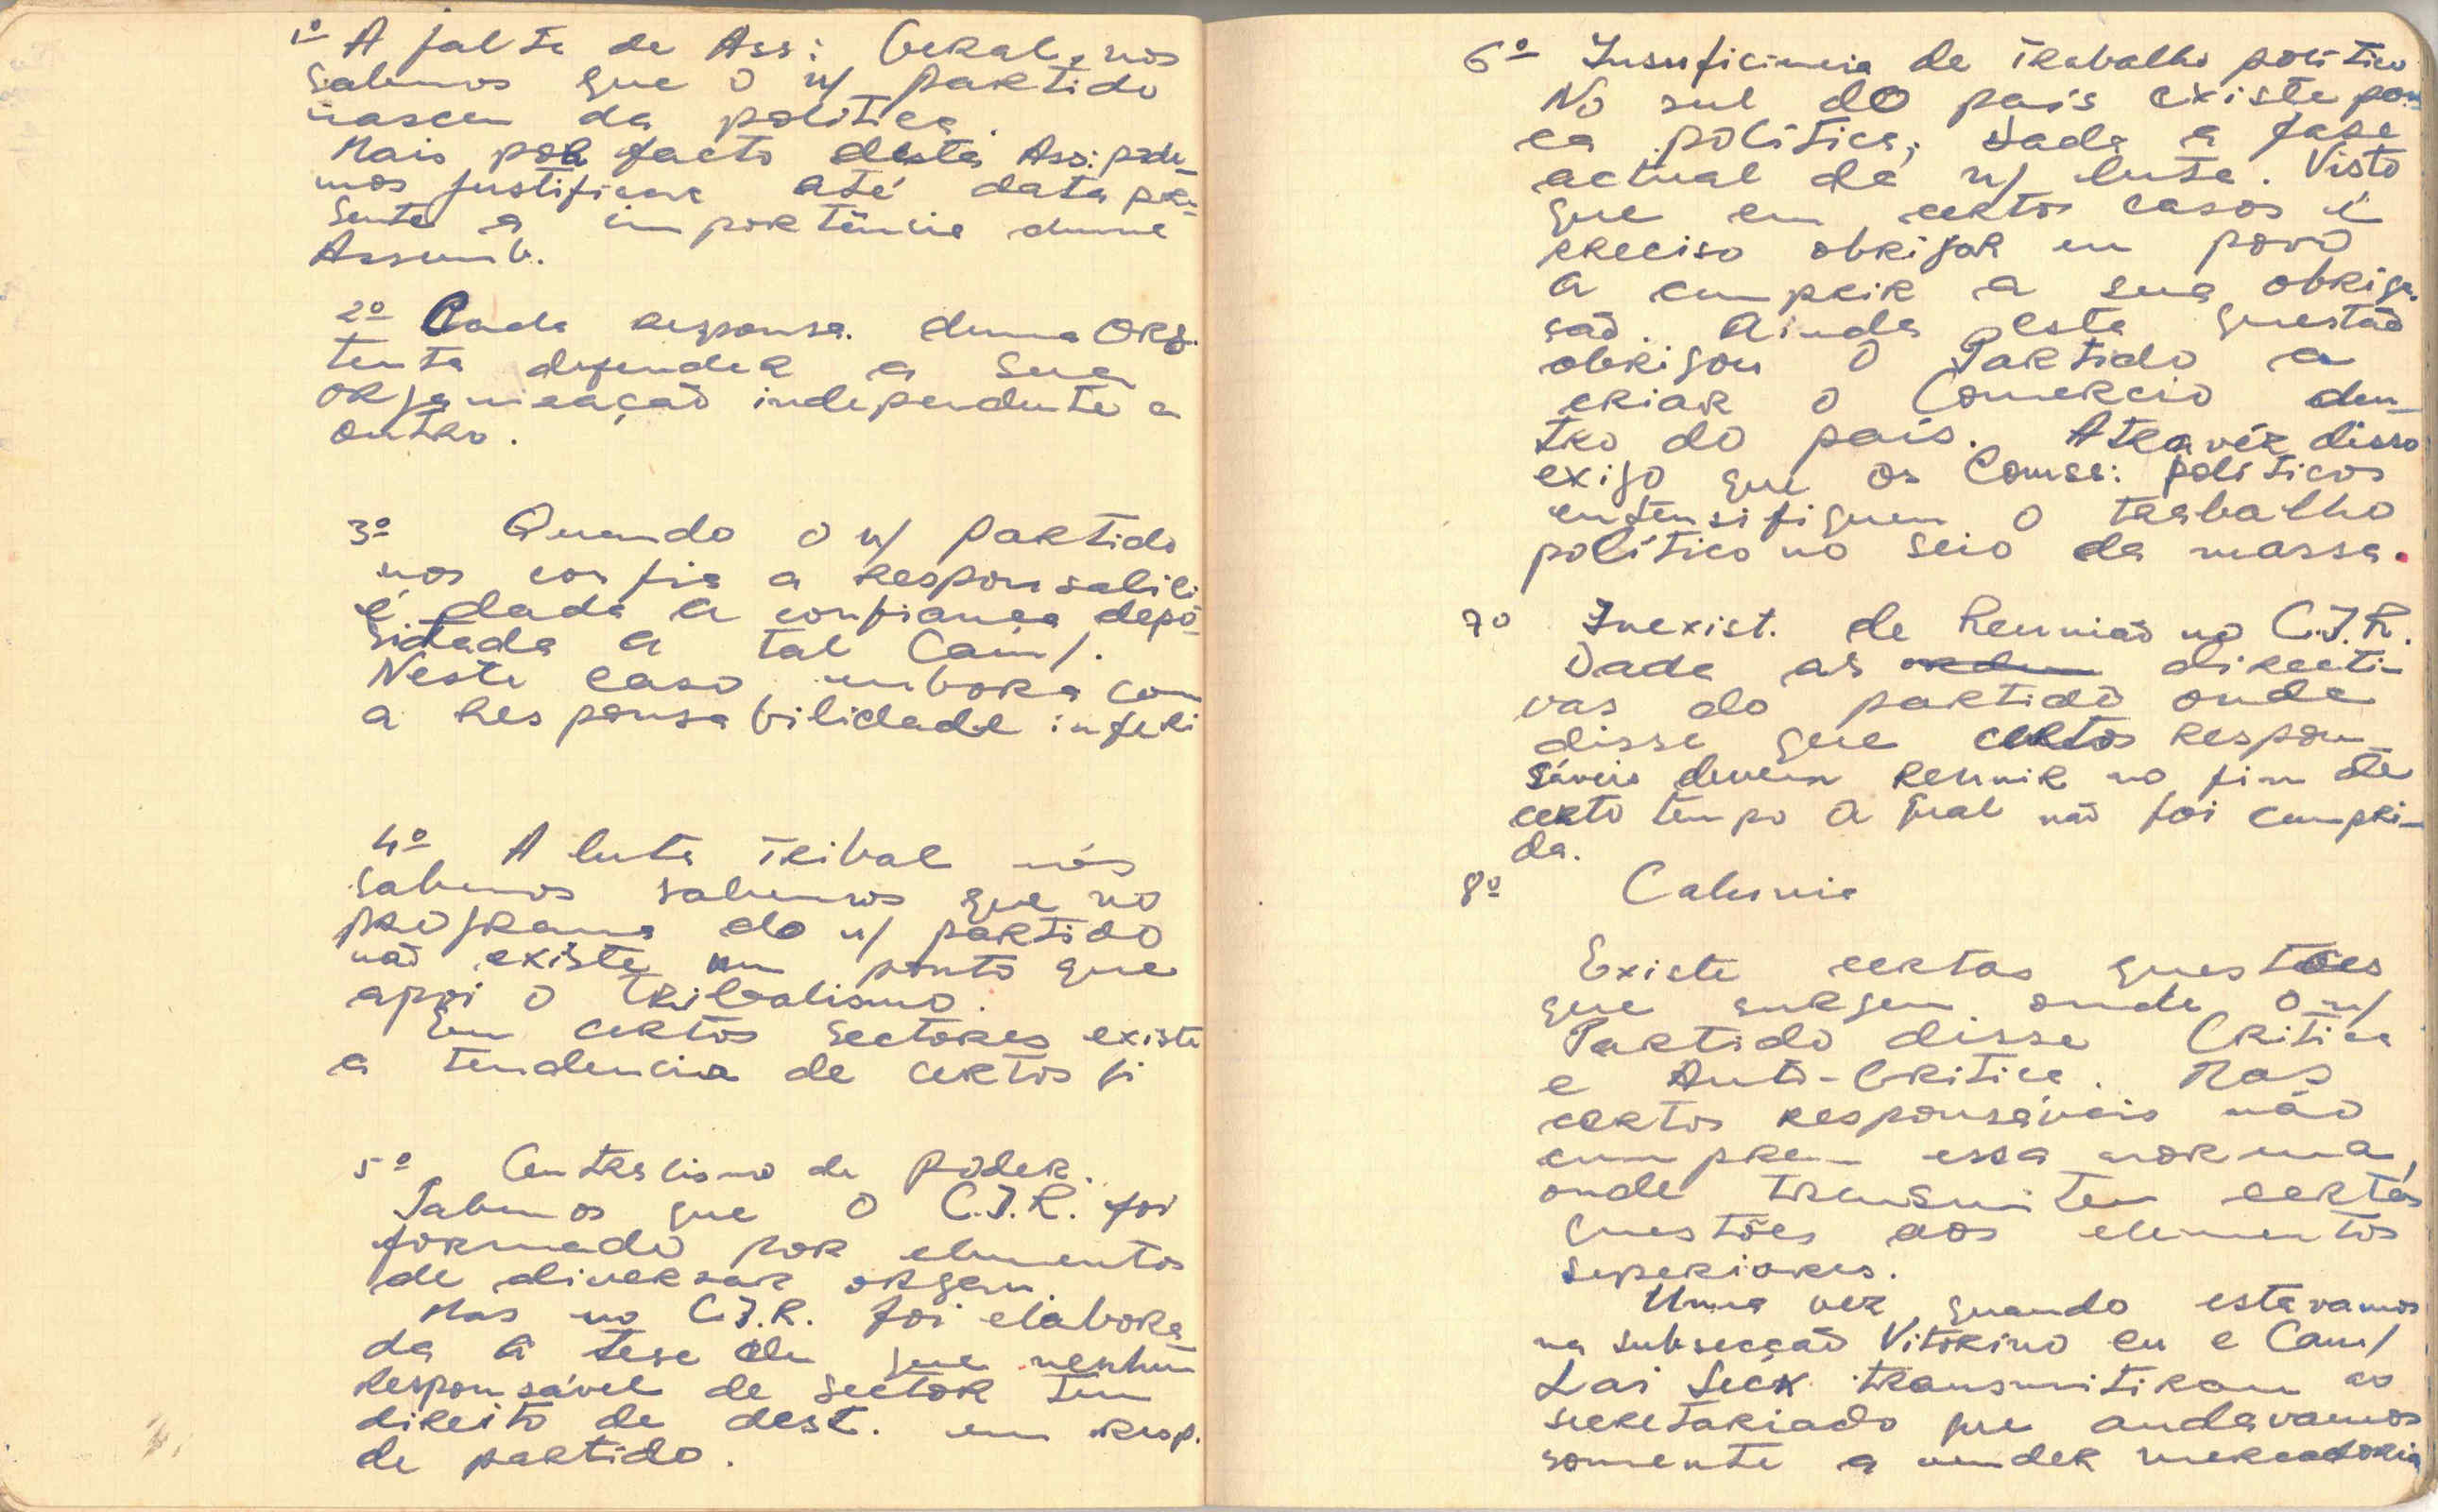 1º A falta de Ass: Geral, nós
sabemos que o n/ partido
nasceu da politica.
Mais por facto desta Ass: pode-
mos justificar até data pre-
sente a importância duma
Assemb.
2º Cada responsa. duma Org.
tenta defender a sua
organização independente a
outro.
3º Quando o n/ partido
nos confia a responsabili
é dada a confiança depo-
sidada a tal Cam/.
Neste caso embora com
a Responsabilidade inferi
4º A luta Tribal nós
sabemos sabemos que no
programa do n/ partido
não existe um ponto que
apoi o Tribalismo.
Em certos sectores existe
a tendencia de certos fi
5º Centralismo de poder.
Sabemos que o C.I.R. foi
formado por elementos
de diversar orgem.
Mas no C.I.R. foi elabora-
da a tese de que nenhum
Responsável de sector tem
direito de dest. um resp.
de partido.
6º Insuficiencia de Trabalho politico
No sul do país existe pou
ca política, dada a fase
actual da n/ luta. Visto
que em certos casos é
preciso obrigar eu povo
a cumprir a sua obriga-
são. Ainda esta questão
obrigou o Partido a
criar o Comercio den-
tro do país. Atravéz disso
exigo que os Comss: políticos
entensifiquem o trabalho
político no seio da massa.
7º Inexist. de Reunião no C.I.R.
Dada as ordem directi-
vas do partido onde
disse que certos respon-
sáveis devem reunir no fim de
certo tempo a qual não foi cumpri-
da.
8º Calunia
Existe certas questões
que surgem onde o n/
Partido disse Critica
e Auto-Critica. Mas
certos responsáveis não
cumprem essa norma,
onde transmitem certas
questões aos elementos
superiores.
Uma vez quando estavamos
na subsecção Vitorino eu e Cam/
Lai Seck transmitiram ao
secretariado que andavamos
somente a vender mercadoria